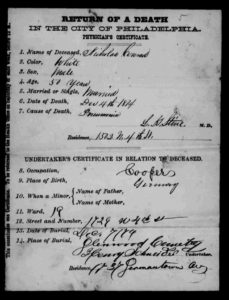 RETURN OF A DEATH
IN THE CITY OF PHILADELPHIA.
PHYSICIAN'S CERTIFICATE.
1. Name of Deceased, Nicholas Conrad
2. Color, White
3. Sex, Male
4. Age, 50 Years
5. Married or Single, Married
6. Date of Death, Dec 4th
7. Cause of Death, Pneumonia
M. D.
Residence, 1523 N. 4th St.
UNDERTAKER'S CERTIFICATE IN RELATION TO DECEASED.
8. Occupation, Cooper
9. Place of Birth, Germany
10. When a Minor, Name of Father,
Name of Mother,
11. Ward,
12. Street and Number, 1729
13. Date of Burial, Dec 7
14. Place of Burial, Glenwood Cemetery
Henry Undertaker.
Residence, Germantown Av